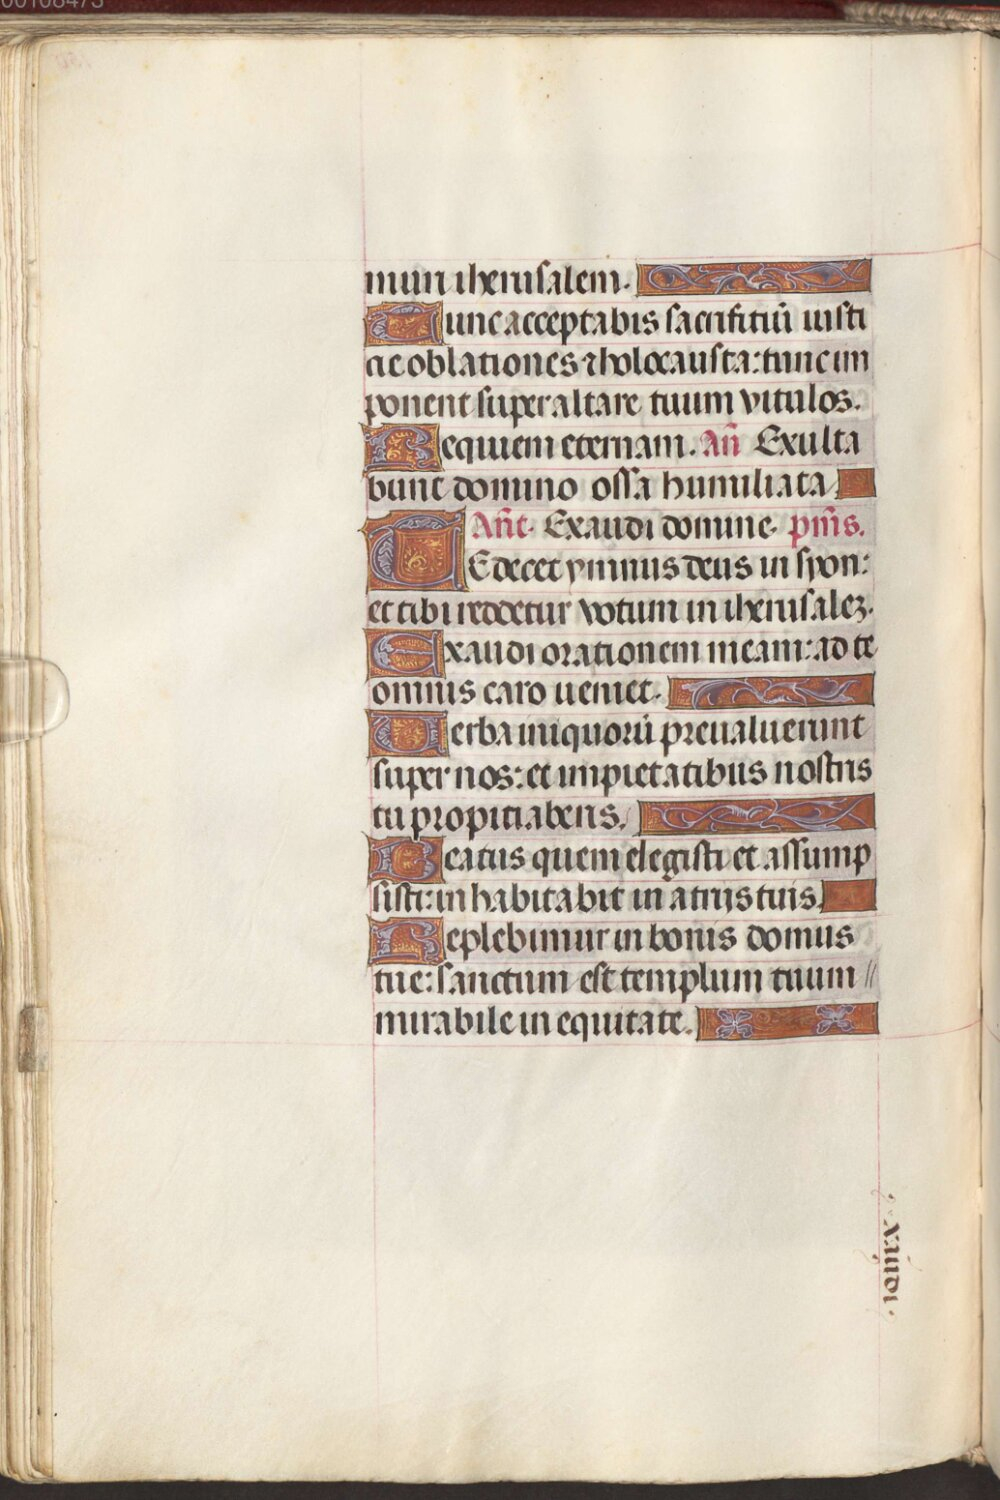 muri iherusalem.
Tunc acceptabis sacrifitiū iusti
cie oblationes ⁊ holocausta: tunc im
ponent super altare tuum vitulos.
Requiem eternam. Añ Exulta
bunt domino ossa humiliata
Añt. Exaudi domine. psm̃s.
TE decet ymnus deus in syon:
et tibi reddetur votum in iherusalez.
Exaudi orationem meam: ad te
omnis caro veniet.
Verba iniquorū preualuerunt
super nos: et impietatibus nostris
tu propitiaberis.
Beatus quem elegisti et assump
sisti: inhabitabit in atrijs tuis.
Replebimur in bonis domus
tue: sanctum est templum tuum //
mirabile in equitate.